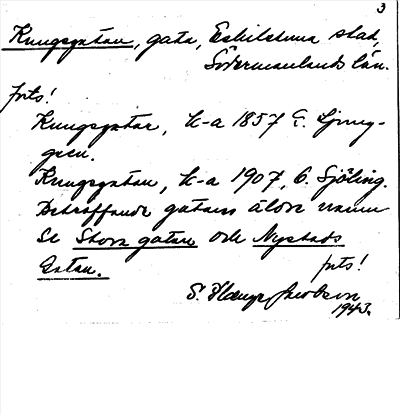 3
Kungsgatan, gata, Eskilstuna stad,
Södermanlands län.
forts!
Kungsgatan, K-a 1857 E. Ljung-
gren.
Kungsgatan, K-a 1907, C. Sjöling.
Beträffande gatans äldre namn
se Stora gatan och Nystads
Gatan.
forts!
S. Jacobson
1943.